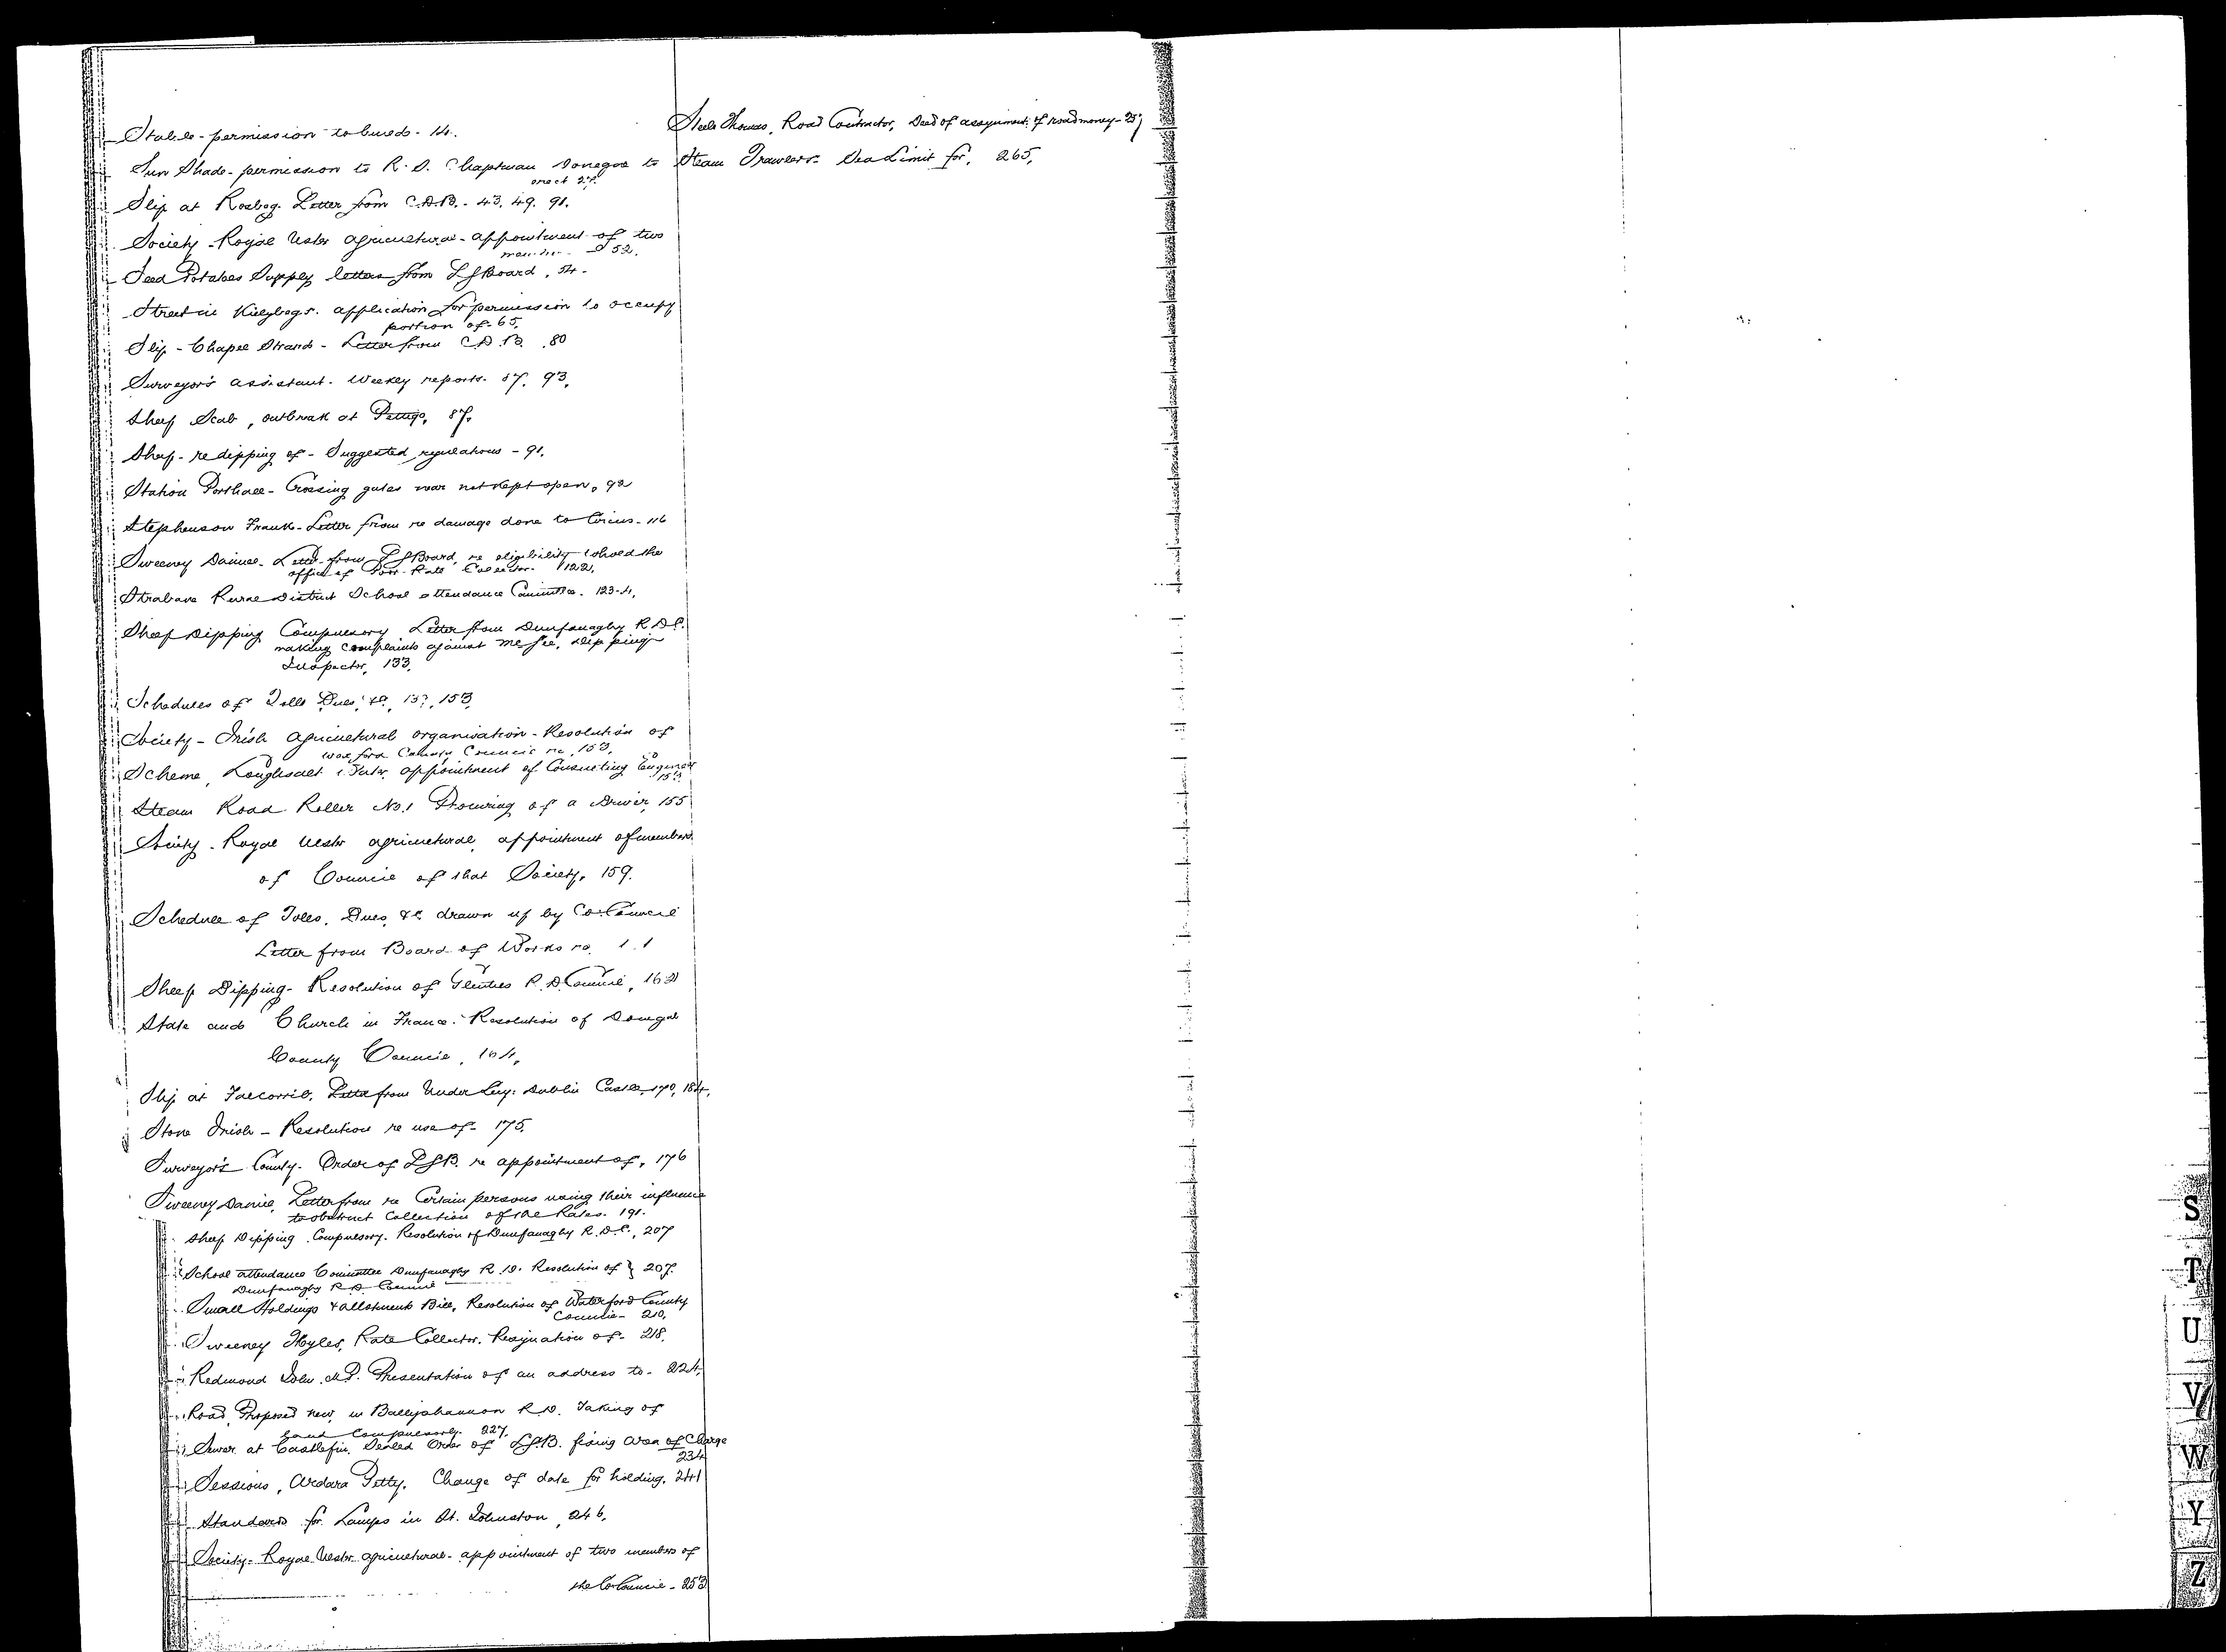 Stables - permission to build - 14.
Sun Shade - permission to R. S. Chapman Donegal to
erect 27.
Slip at Rosbeg. Letter from C.D.B. - 43. 49. 91.
Society - Royal Ulster Agricultural - appointment of two
members - 52.
Seed Potatoes Supply letters from LGBoard, 54 -
Street in Killybegs. application for permission to occupy
portion of - 65.
Slip - Chapel Strand - Letter from C.D.B. 80
Surveyor's assistant. Weekly reports. 87. 93.
Sheep Scab, outbreak at Pettigo, 87.
Sheep - redipping of - Suggested regulations - 91.
Station Porthall - Crossing gates near not kept open, 92
Stephenson Frank - Letter from re damage done to Circus - 116
Sweeney Daniel - Letter from LGBoard, re eligibility to hold the
office of Poor Rate Collector. 122.
Strabane Rural District School attendance Committee. 123-4.
Sheep Dipping Compulsory Letter from Dunfanaghy R.D.C.
making complaints against McGee, dipping
Inspector, 133.
Schedules of Tolls Dues, &c, 153
Society - Irish Agricultural organisation - Resolution of
Wexford County Council re, 153.
Scheme, Loughsalt Water, appointment of Consulting Engineer
Steam Road Roller No. 1 Procuring of a Driver, 155
Society - Royal Ulster Agricultural, appointment of members
of Council of that Society, 159.
Schedule of Tolls, Dues, &c. drawn up by Co. Council
Letter from Board of Works re,
Sheep Dipping - Resolution of Glenties R.D. Council, 162
State and Church in France. Resolution of Donegal
County Council, 164.
Slip at Falcorrib. Letter from Under Secy: Dublin Castle, 170, 184.
Stone Irish - Resolution re use of - 175.
Surveyor's County - Order of LGB. re appointment of, 176
Sweeney Daniel, Letter from re Certain persons using their influence
to obstruct Collection of the Rates - 191.
Sheep Dipping Compulsory. Resolution of Dunfanaghy R.D.C., 207
School attendance Committee Dunfanaghy R.D. Resolution of } 207.
Dunfanaghy R.D. Council
Small Holdings & Allotments Bill, Resolution of Waterford County
Council - 210.
Sweeney Myles, Rate Collector, Resignation of - 218.
Redmond John M.P. Presentation of an address to - 224.
Road, Proposed new, in Ballyshannon R.D. Taking of
land Compulsorily 227.
Sewer at Castlefin, Sealed Order of LGB. fixing Area of Charge
234
Sessions, Ardara Petty. Change of date for holding, 241
Standards for Lamps in St. Johnston, 246.
Society - Royal Ulster Agricultural - appointment of two members of
the Co. Council - 253
Steele Thomas, Road Contractor, Deed of assignment of road money - 257
Steam Trawlers - Sea Limit for, 265.
S
T
U
V
W
Y
Z